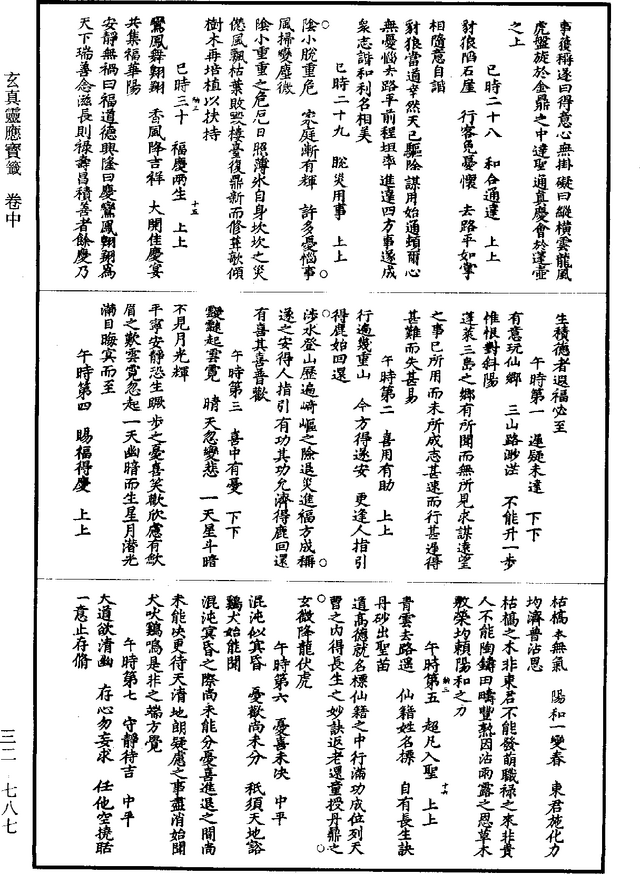 事後稱遂曰得意心無掛礙曰縱橫雲龍風
虎盤旋於金鼎之中達聖通真慶會於蓬壺
之上
巳時二十八　和合通達　上上
豺狼陷石崖　行客免憂懷　去路平如掌
相隨意自諧
豺狼當道幸然天已驅除謀用始通頓爾心
無憂惱去路平前程坦率進達四方事遂成
衆志諧和利名相美
巳時二十九　脫災用事　上上
陰小脫重危　家庭漸有輝　許多憂惱事
風掃變塵微
陰小重重之危厄日照薄氷自身坎坎之災
僽風飄枯葉敗毀樓臺復鼎新而修葺欹傾
樹木再培植以扶持
巳時三十　福慶兩生　上上
鸞鳳舞翱翔　香風降吉祥　大開佳慶宴
共集福華陽
安靜無禍曰福道德興隆曰慶鸞鳳翱翔爲
天下瑞善念滋長則祿壽昌積善者餘慶乃
生積德者遐福必至
午時第一　遲疑未達　下下
有意玩仙鄉　三山路渺茫　不能升一步
惟恨對斜陽
蓬萊三島之鄉有所聞而無所見求謀遠望
之事已所用而未所成志甚速而行甚遲得
甚難而失甚易
午時第二　喜用有助　上上
行過幾重山　今方得遂安　更逢人指引
得鹿始回還
涉水登山歷過崎嶇之險退災進福方成稱
遂之安得人指引有功其功允濟得鹿回還
有喜其喜普歡
午時第三　喜中有憂　下下
靉靆起雲霓　晴天忽變悲　一天星斗暗
不見月光輝
平寧安靜恐生蹶步之憂喜笑歡欣慮有皺
眉之歎雲霓忽起一天幽暗而生星月潛光
滿目晦㝠而至
午時第四　賜福得慶　上上
枯槁木無氣　陽和一變春　東君施化力
均濟普沾恩
枯槁之木非東君不能發萌職祿之來非貴
人不能陶鑄田疇豐熟因沾雨露之恩草木
敷榮均賴陽和之力
午時第五　超凡入聖　上上
青雲去路遥　仙籍姓名標　自有長生訣
丹砂出聖苗
道高德就名標仙籍之中行滿功成位列天
曹之内得長生之妙訣返老還童授丹鼎之
玄微降龍伏虎
午時第六　憂喜未決　中平
混沌似㝠昏　憂歡尚未分　秖須天地谿
鷄犬始能聞
混沌㝠昏之際尚未能分憂喜進退之間尚
未能決更待天清地朗疑慮之事盡消始聞
犬吠鷄鳴是非之端方覺
午時第七　守靜待吉　中平
大道欲清幽　存心勿妄求　任他空撓聒
一意止存脩
玄真靈應寶籤　卷中
三二　七八七